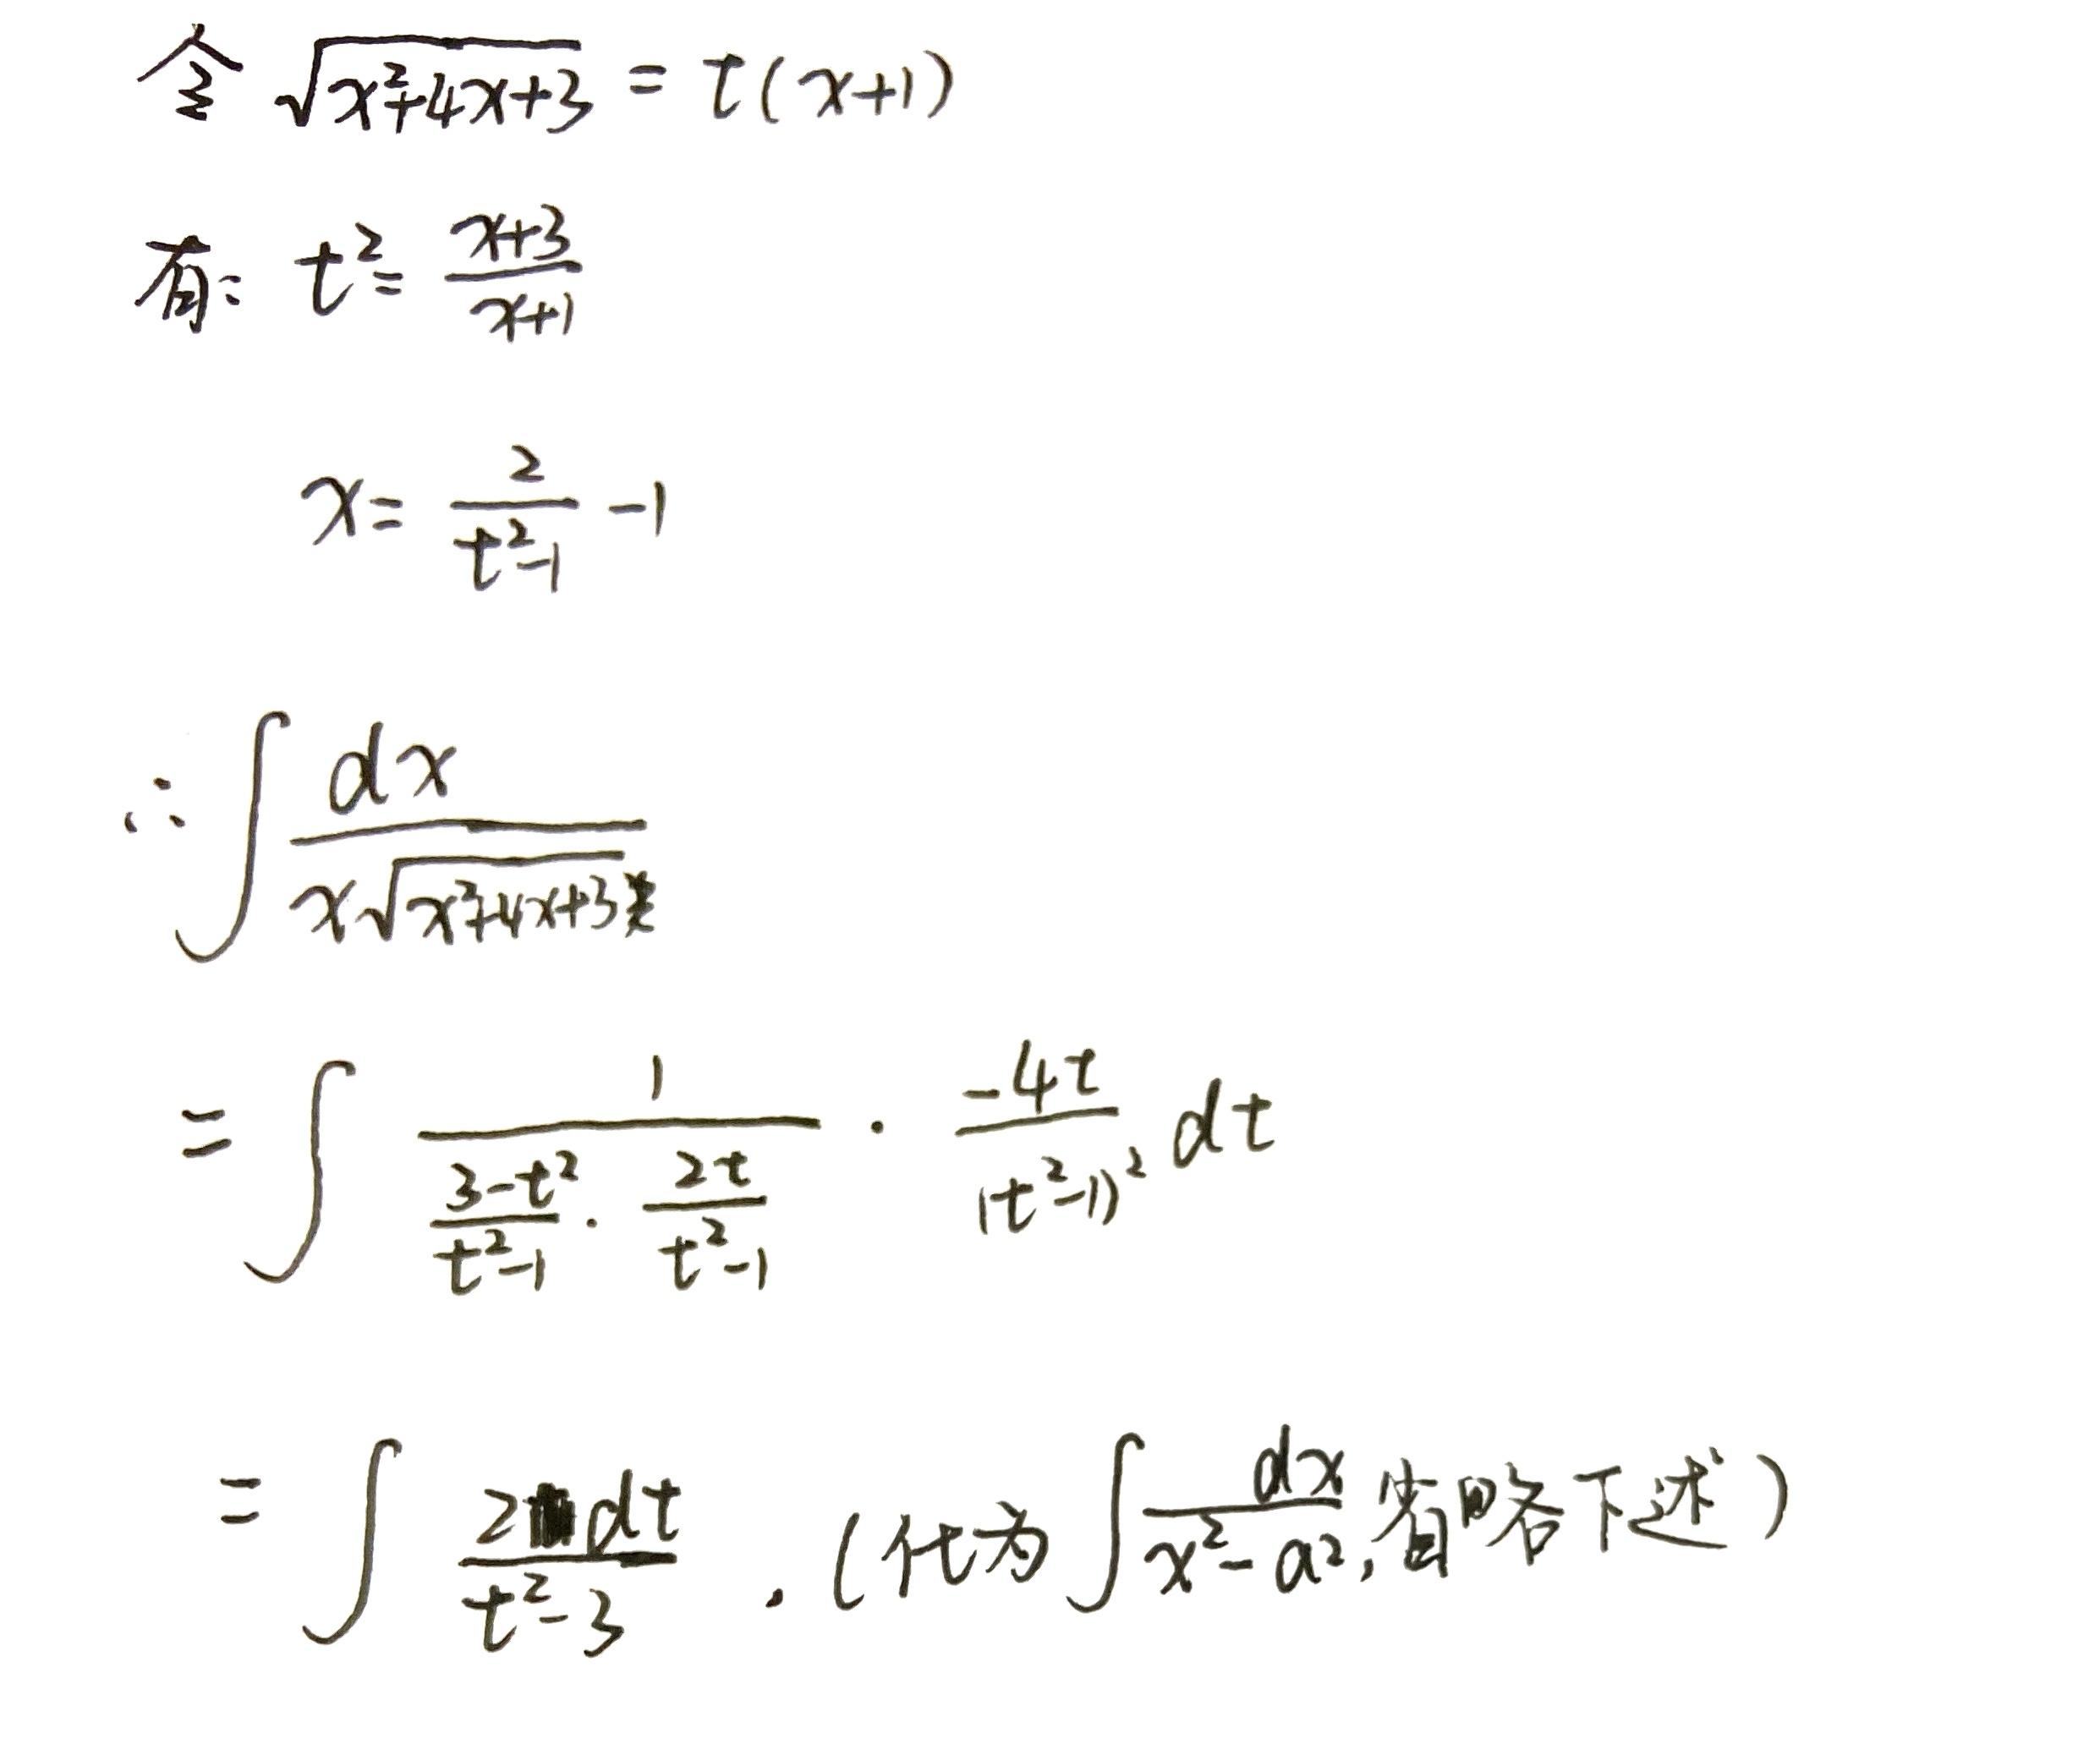 令 √(x²+4x+3) = t(x+1)
有: t² = (x+3)/(x+1)
x = 2/(t²-1) -1
∴ ∫ dx/(x√(x²+4x+3))
= ∫ 1/((3-t²)/(t²-1) · 2t/(t²-1)) · -4t/(t²-1)² dt
= ∫ 2dt/(t²-3) . (代为 ∫ dx/(x²-a²), 省略下述)